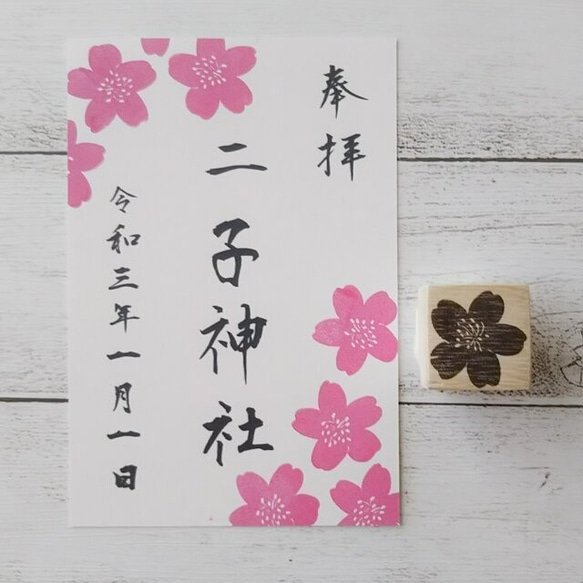 奉拝
二子神社
令和三年一月一日